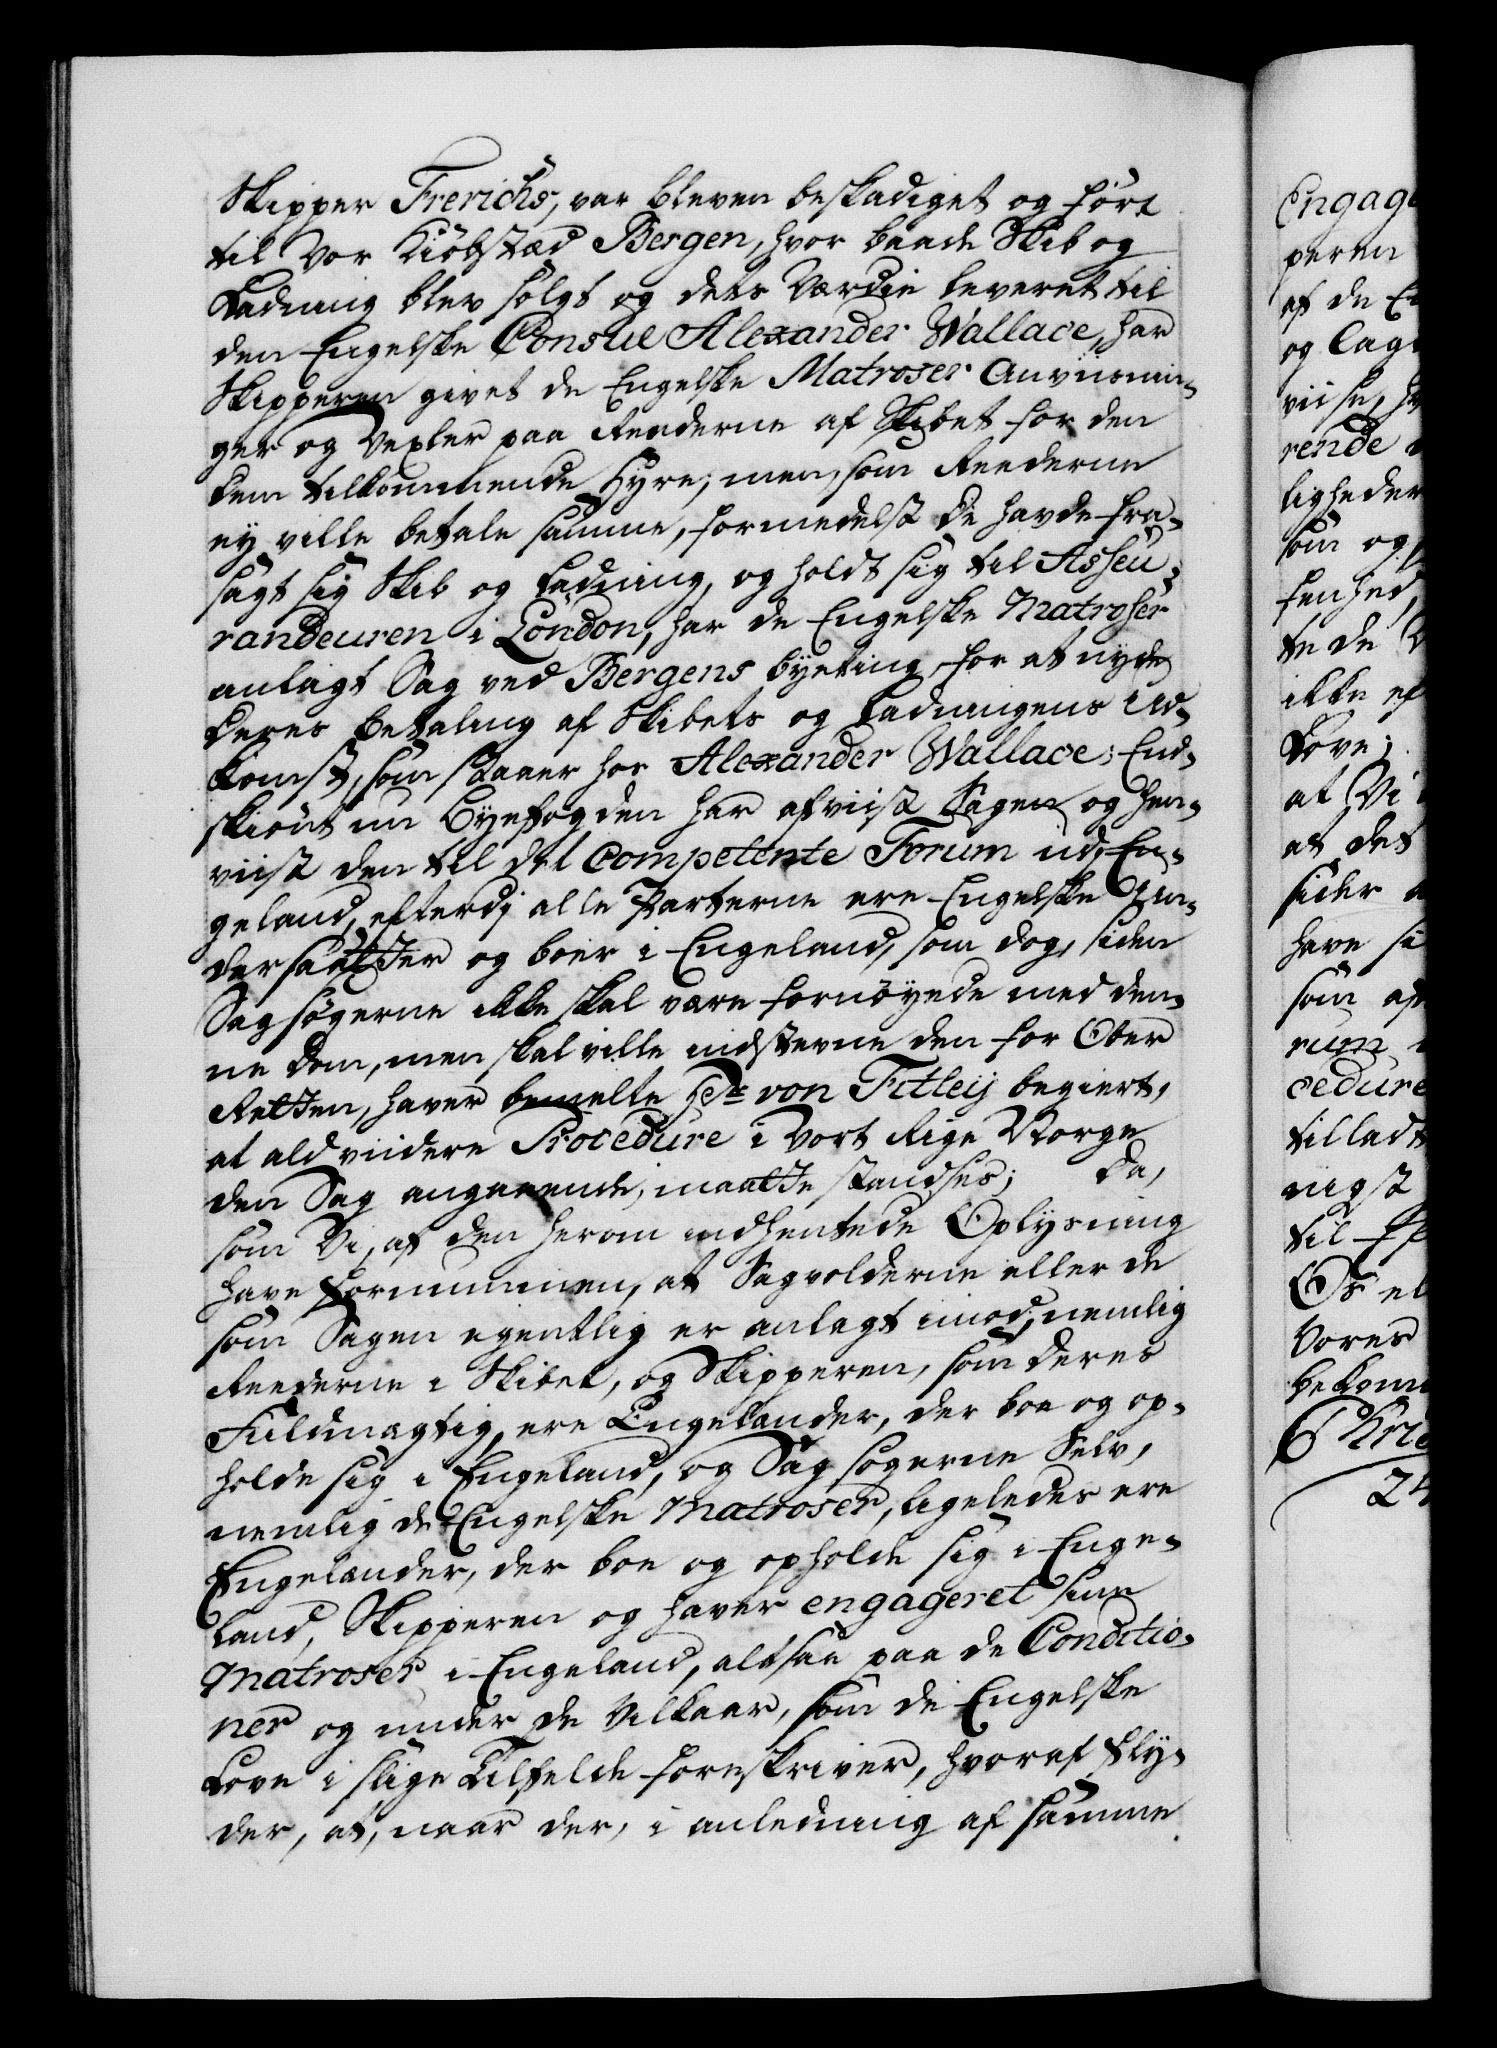 Skipper Frerichs, var bleven beskadiget og ført
til Vor Kiøbstæd Bergen, hvor baade Skib og
Ladning blev solgt og dets Værdie leveret til
den Engelske Consul Alexander Wallace, har
Skipperen givet de Engelske Matroser Anviisnin-
ger og Vexler paa Rederne af Skibet for den
dem tilkommende Hyre; men, som Reederne
ey ville betale samme, formedelst de havde fra-
sagt sig Skib og Ladning, og holdt sig til Asseu-
randeuren i London, har de Engelske Matroser
anlagt Sag ved Bergens byeting, for at nyde
deres Betaling af Skibets og Ladningens Ud-
komst, som staaer hos Alexander Wallace; End-
skiønt nu Byefogden har afviist Sagen og hen-
viist den til det Competente Forum ud i En-
geland, efterdj alle Parterne ere Engelske Un-
dersaatter og boer i Engeland, som dog, siden
Sagsøgerne ikke skal være fornøyede med den-
ne Dom, men skal ville indstevne den for Ober
Retten, haver bemelte Hr von Titleij begiert,
at ald viidere Procedure i Vort Rige Norge
den Sag angaaende, maatte standses; Da,
som Vi, af den herom indhentede Oplysning
have fornummen, at Sagvolderne eller de
som Sagen egentlig er anlagt imod, nemlig
Reederne i Skibet, og Skipperen, som deres
Fuldmægtig, ere Engelænder, der boe og op-
holde sig i Engeland, og Sagsøgerne Selv,
nemlig de Engelske Matroser, ligeledes ere
Engelænder, der boe og opholde sig i Enge-
land, Skipperen og haver engageret sine
Matroser i Engeland, altsaa paa de Conditio-
ner og under de Vilkaar, som de Engelske
Love i slige Tilfelde foreskriver, hvoraf flÿ-
der, at, naar der, i anledning af samme
Engage
peren
af de En
og lag
viise, hv
rende
ligheder
som og
fenhed,
te de
ikke ef
Love;
at Vi
at det
sider
have si
som af
rum
cedure
tilladt
nigst
til Ef
Os el
Vores
bekom
24